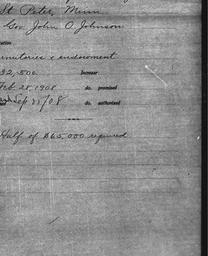 St Peter, Minn.
Gov. John O. Johnson
mitories & endowment
32,500 Increase
Feb 28, 1908 do. promised
Sep 22/08 do. authorized
Half of $65,000 required